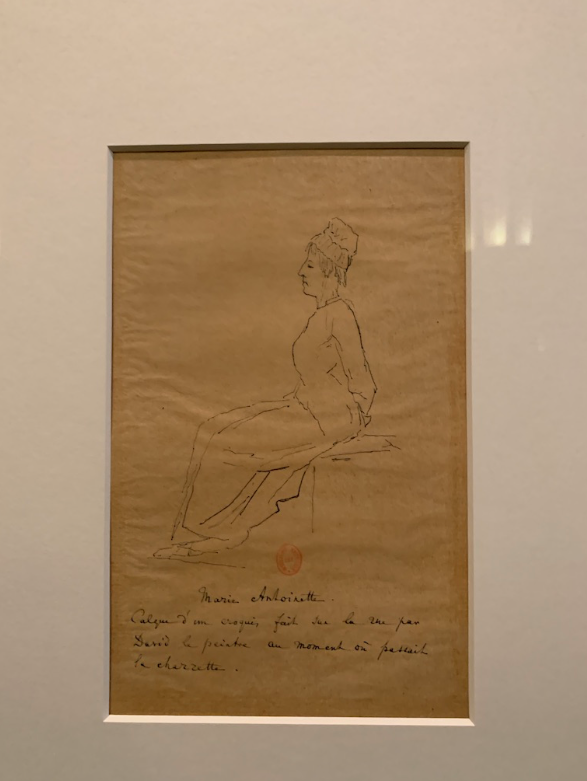 Marie Antoinette.
Calque d'un croquis, fait sur la rue par
David le peintre au moment où passait
la charrette.